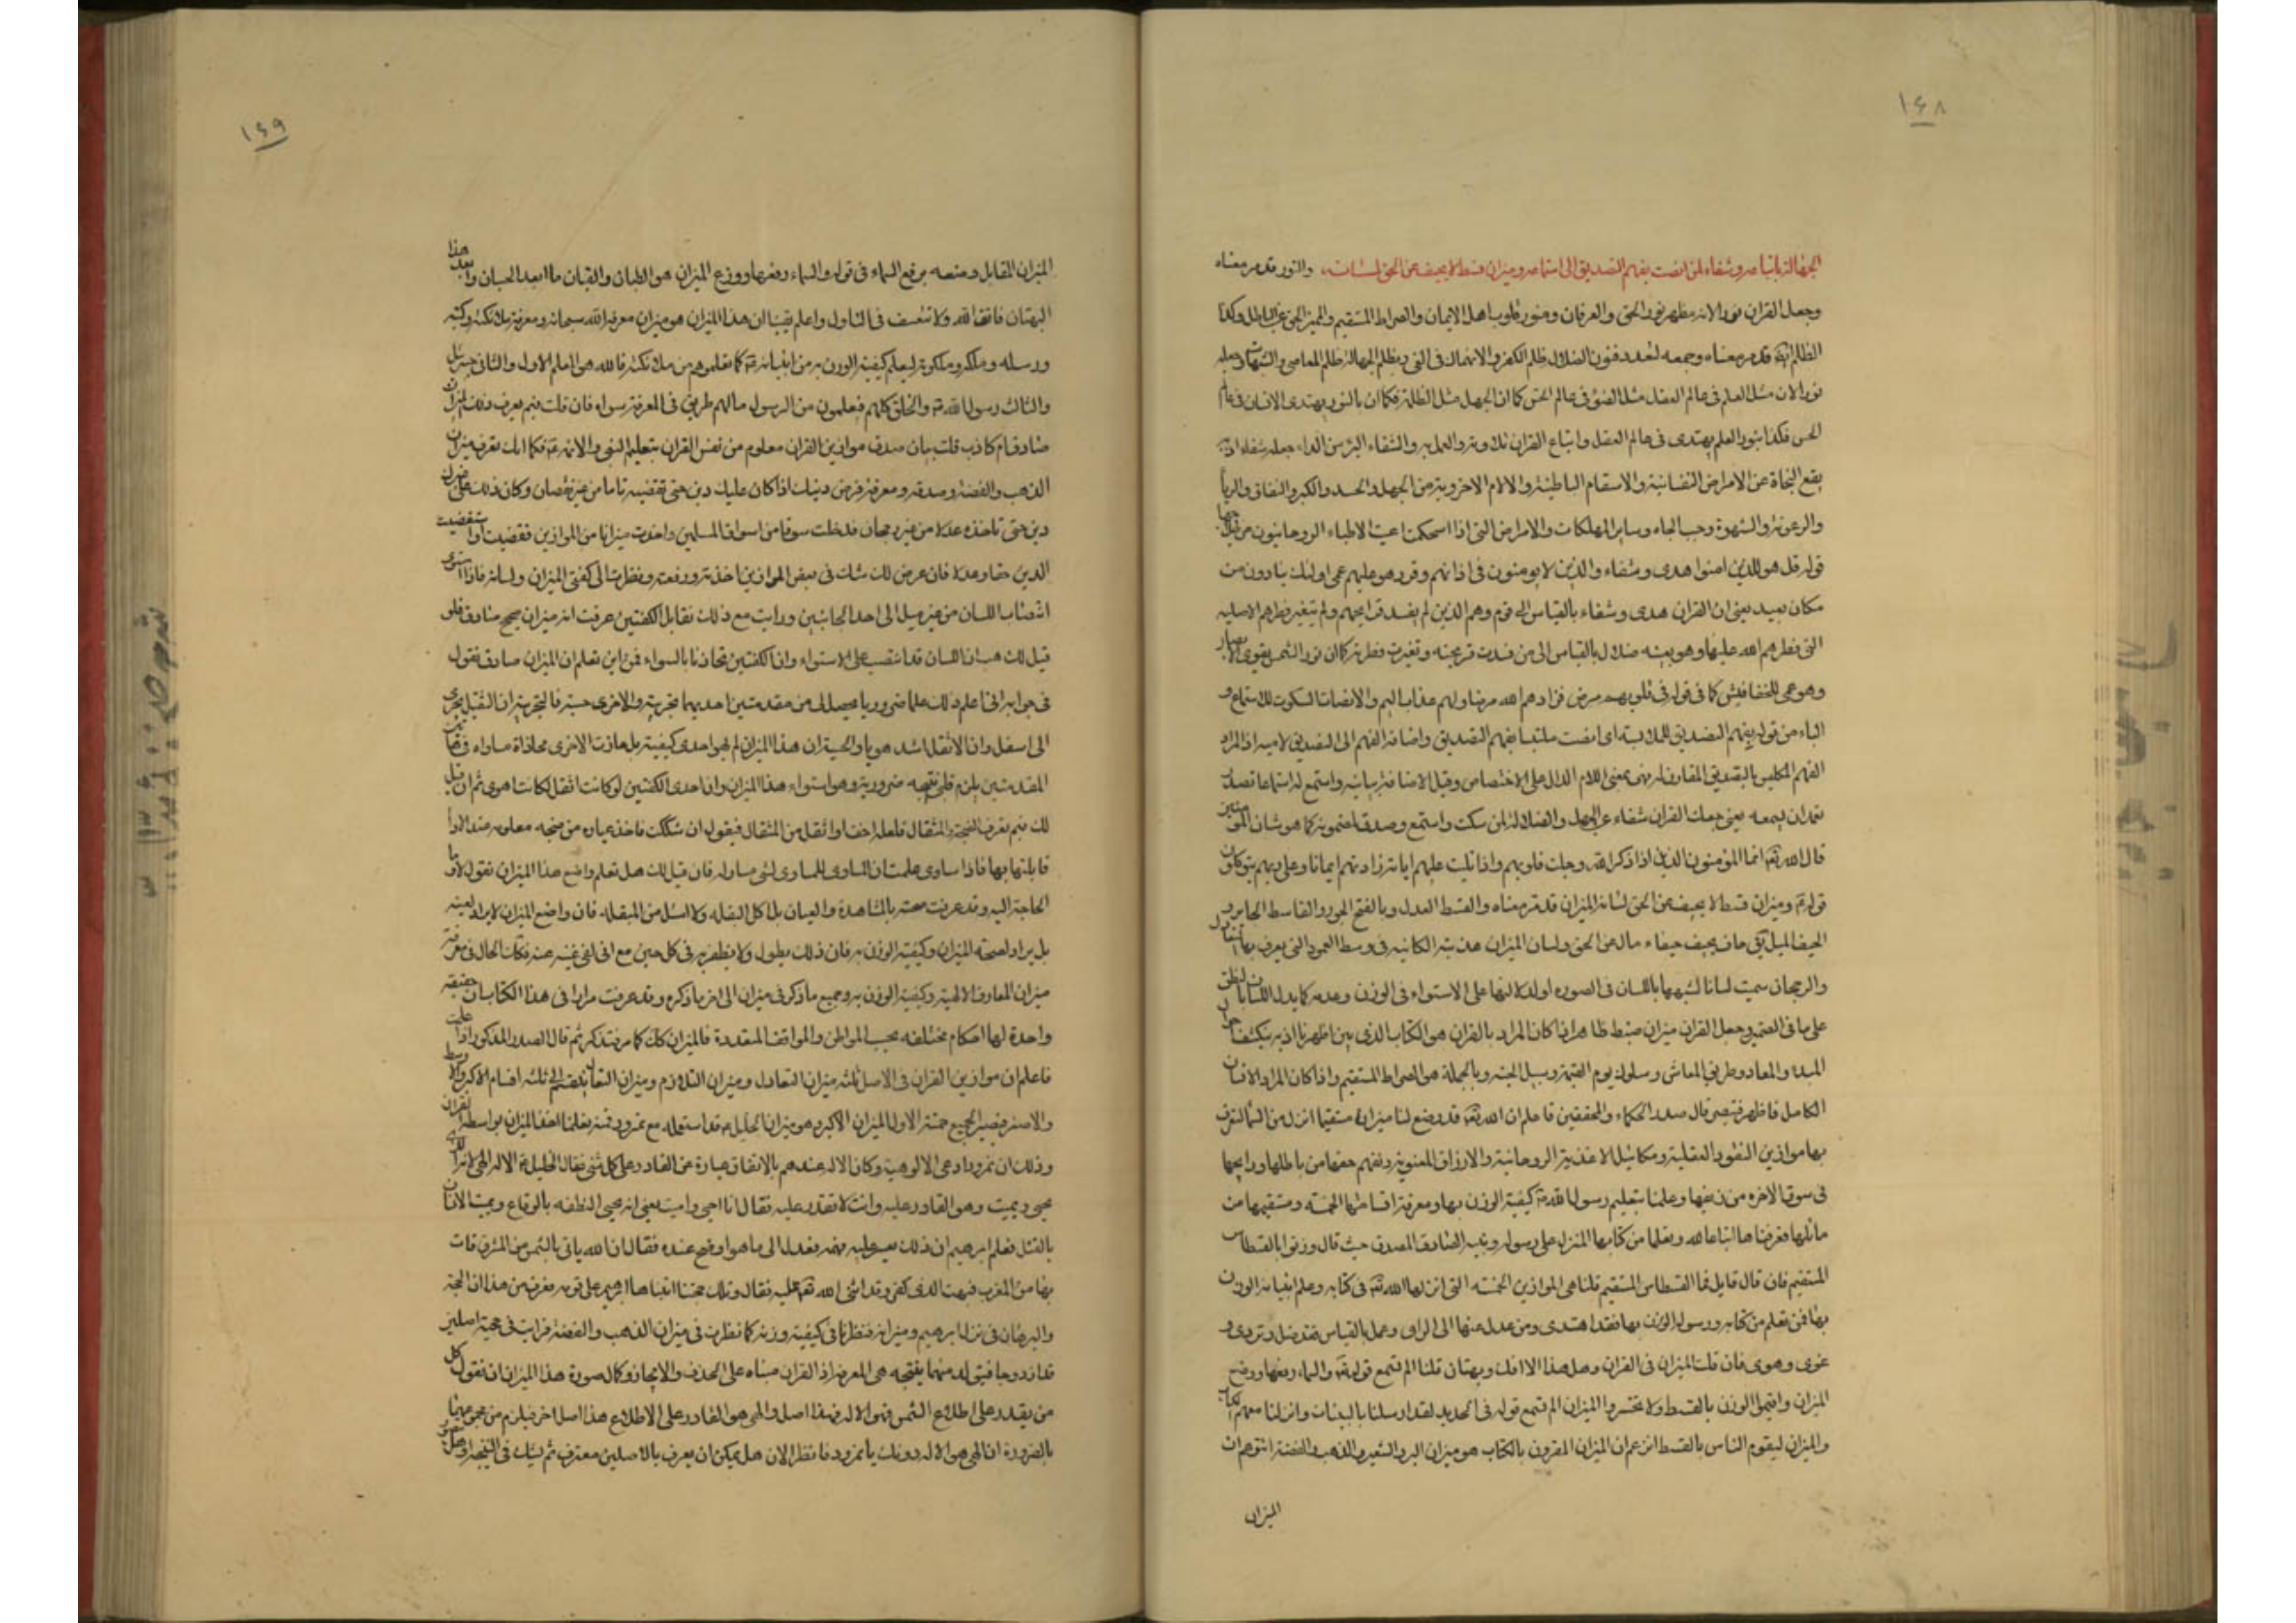 ١٤٨
الجهالة باتباعه وشفاء لمن انصت بفهم التصديق الى استماعه وميزان قسط لا يحيف عن الحق لسانه، والنور قد مر معناه
وجعل القران نورا لانه مظهر نور الحق والعرفان ومنور قلوب اهل الايمان والصراط المستقيم والمميز الحق عن الباطل وكذا
الظلم ايضا قد مر معناه وجمعه لتعدد فنون الضلال ظلم الكفر والانهماك فى الغى وبظلم الجهالة ظلم المعاصى والشبهات وجعله
نورا لان مثل العلم فى عالم العقل مثل الضوء فى عالم الحس كما ان الجهل مثل الظلمة فكما ان بالنور يهتدى الانسان فى عالم
الحس فكذا بنور العلم يهتدى فى عالم العقل واتباع القران تلاوته والعمل به والشفاء البرء من الداء جعله شفاء اذ به
يقع النجاة عن الامراض النفسانية والاسقام الباطنية والالام الاخروية من الجهل والحسد والكبر والنفاق والريا
والرعونة والشهوة وحب الجاه وساير المهلكات والامراض التى اذا استحكمت اعيت الاطباء الروحانيون من
قوله قل هو للذين امنوا هدى وشفاء والذين لا يومنون فى اذانهم وقر وهو عليهم عمى اولئك ينادون من
مكان بعيد يعنى ان القران هدى وشفاء بالقياس الى قوم وهم الذين لم يفسد قرايحهم ولم تتغير فطرهم الاصليه
التى فطرهم الله عليها وهو بعينه ضلال بالقياس الى من فسدت قريحته وتغيرت فطرته كما ان نور الشمس يقوى الابصار
وهو عمى للخفافيش كما فى قوله فى قلوبهم مرض فزادهم الله مرضا ولهم عذاب اليم والانصات السكوت للاستماع و
الباء من قوله بفهم التصديق للملابسة اى انصت ملتبسا بفهم التصديق واضافة الفهم الى التصديق لامية اذ المراد
الفهم المتلبس بالتصديق المقارن له فهى بمعنى اللام الدال على الاختصاص وقيل الاضافة بيانيه واستمع له استماعا قصدا
تعمد ان يسمعه يعنى جعلت القران شفاء عن الجهل والضلالة لمن سكت واستمع وصدق لمضمونه كما هو شان المومنين
قال الله تعه انما المؤمنون الذين اذا ذكر الله وجلت قلوبهم واذا تليت عليهم اياته زادتهم ايمانا وعلى ربهم يتوكلون
قوله ع وميزان قسط لا يحيف عن الحق لسانه الميزان قد مر معناه والقسط العدل وبالفتح الجور والقاسط الجاير و
الحيف الميل يق حاف يحيف حيفا مال عن الحق ولسان الميزان عذبته الكائنه فى وسط العمود التى يعرف بها
والرجحان سميت لسانا لشبهها باللسان فى الصوره او لدلالتها على الاستواء فى الوزن وعدمه كما يدل اللسان
على ما فى الضمير وجعل القران ميزان قسط ظاهر ان كان المراد بالقران هو الكتاب الذى بين اظهرنا اذ به ينكشف
المبدء والمعاد وطريق المعاش وسلوك يوم القيمة وسبيل الجنه وبالجملة هو الصراط المستقيم واذا كان المراد الانسان
الكامل فاظهر فتبصر قال صدر الحكماء والمحققين فاعلم ان الله تعه قد وضع لنا ميزانا مستقيما انزل من السماء لنعرف
بها موازين النقود العقلية ومكائيل الاغذية الروحانية والارزاق المعنوية ونفهم حقها من باطلها ورايجها
فى سوق الاخره من زيفها وعلمنا بتعليم رسول الله ص كيفية الوزن بها ومعرفة اقسامها الخمسه ومستقيمها من
مائلها فعرفناها اتباعا لله وتعلما من كتابها المنزل على رسوله ونبيه الصادق المصدق حيث قال وزنوا بالقسطاس
المستقيم فان قال قايل فما القسطاس المستقيم قلنا هى الموازين الخمسه التى انزلها الله تعه فى كتابه وعلم انبيائه الوزن
بها فمن تعلم من كتابه ورسوله الوزن بها فقد اهتدى ومن عدل عنها الى الراى وعمل بالقياس فقد ضل وتردى و
غوى وهوى فان قلت الميزان فى القران وهل هذا الا افك وبهتان قلنا الم تسمع قوله تعه والسماء رفعها ووضع
الميزان واقيموا الوزن بالقسط ولا تخسروا الميزان الم تسمع قوله فى الحديد لقد ارسلنا بالبينات وانزلنا معهم الكتاب
والميزان ليقوم الناس بالقسط اتزعم ان الميزان المقرون بالكتاب هو ميزان البر والشعير والذهب والفضة اتتوهم ان
الميزان
١٤٩
الميزان المقابل وضعه برفع السماء فى قوله والسماء رفعها ووضع الميزان هو الطبان والقبان ما ابعد الحسبان وابعد هذا
البهتان فاتق الله ولا تتعسف فى التاول واعلم يقينا ان هذا الميزان هو ميزان معرفة الله سبحانه ومعرفة ملائكته وكتبه
ورسله وملكه وملكوته ليعلم كيفية الوزن به من انبيائه كما تعلموهم من ملائكته فالله هو المعلم الاول والثانى جبرئيل
والثالث رسول الله ص والخلق كلهم يتعلمون من الرسول ما لهم طريق فى المعرفة سواه فان قلت فبم يعرف ذلك الميزان
صادق ام كاذب قلت بيان صدق موازين القران معلوم من نفس القران بتعليم النبى والائمة ع فكما انك تعرف ميزان
الذهب والفضة وصدقه ومعرفة فرض دينك اذا كان عليك دين حتى تقضيه تاما من غير نقصان وكان ذلك على غيرك
دين حتى تاخذه عدلا من غير رجحان فدخلت سوقا من اسواق المسلمين واخذت ميزانا من الموازين فقضيت او استقضيت
الدين حقا وعدلا فان عرض لك شك فى بعض الموازين اخذته ورفعته ونظرت الى كفتى الميزان ولسانه فاذا استوى
انتصاب اللسان من غير ميل الى احد الجانبين ورايت مع ذلك تقابل الكفتين عرفت انه ميزان صحيح صادق فلو
قيل لك هب ان اللسان قد انتصب على الاستواء وان الكفتين تحاذتا بالسواء فمن اين تعلم ان الميزان صادق فنقول
فى جوابه انى اعلم ذلك علما ضروريا يحصل لى من مقدمتين احديهما تجربية والاخرى حسية فالتجربية ان الثقيل يجرى
الى اسفل وان الاثقل اشد هويا والحسية ان هذا الميزان لم يهو احدى كفيتيه بل حاذت الاخرى محاذاة مساواة فمن
المقدمتين يلزم قلبى نتيجه ضرورية وهو استواء هذا الميزان وان احدى الكفتين لو كانت اثقل لكانت اهوى ثم ان قيل
لك فبم تعرف الصنجة والمثقال فلعله اخف او اثقل من المثقال فيقول ان شككت فاخذ عياره من صنجه معلومه
قابلتها بها فاذا ساوى علمت ان المساوى للمساوى لشى مساو له فان قيل لك هل تعلم واضع هذا الميزان نقول لا وما
الحاجة اليه وقد عرفت صحته بالمشاهدة والعيان بل اكل البقله ولا اسئل من المبقله فان واضع الميزان لا يراد لعينه
بل يراد لصحته الميزان وكيفية الوزن به فان ذلك يطول ولا يظفر به فى كل حين مع انى لفى غنية عنه فكك الحال فى معرفة
ميزان المعارف الالهية وكيفية الوزن به وجميع ما ذكر فى ميزان الى اخر ما ذكره وقد عرفت مرارا فى هذا الكتاب ان حقيقه
واحدة لها احكام مختلفه بحسب المواطن والمواقف المتعددة فالميزان كك كما مر فتذكر ثم قال الصدر المذكور اذا علمت
فاعلم ان موازين القران فى الاصل ثلثه ميزان التعادل وميزان التلازم وميزان التعاند الى ثلثه اقسام الاكبر والاوسط
والاصغر فيصير الجميع خمسة الاول الميزان الاكبر وهو ميزان الخليل ع قد استعمله مع نمرود فمنه تعلمنا هذا الميزان بواسطة القران
وذلك ان نمرود ادعى الالوهية وكان الاله عندهم بالاتفاق عبارة عن القادر على كل شى فقال الخليل ع الاله
يحيى ويميت وهو القادر عليه وانت لا تقدر عليه فقال انا احيى واميت يعنى انه يحيى النطفه بالوقاع ويميت الانسان
بالقتل فعلم ابرهيم ان ذلك يعسر عليه فهمه فعدل الى ما هو اوضح عنده فقال ان الله ياتى بالشمس من المشرق فات
بها من المغرب فبهت الذى كفر وقد اثنى الله تعه عليه فقال وتلك حجتنا اتيناها ابرهيم على قومه فعرفت من هذا ان الحجة
والبرهان فى قول ابرهيم وميزانه فنظرنا فى كيفية وزنه كما نظرت فى ميزان الذهب والفضة فرايت فى حجته اصلين
قد ازدوجا فتولد منهما نتيجه هى المعرفة اذ القران مبناه على الحذف والايجاز وكمال صورة هذا الميزان ان نقول كل
من يقدر على اطلاع الشمس فهو الاله فهذا اصل والهى هو القادر على الاطلاع هذا اصل اخر فيلزم من مجموعهما
بالضرورة ان الهى هو الاله دونك يا نمرود فانظر الان هل يمكن ان يعرف بالاصلين معترف ثم يشك فى النتيجة او هل